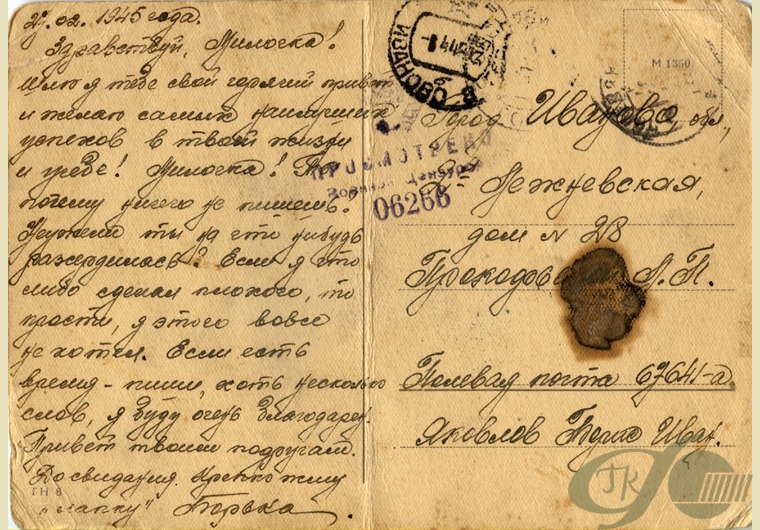 27.02.1945 года.
Здравствуй, Милочка!
Шлю я тебе свой горячий привет
и желаю самых наилучших
успехов в твоей жизни
и учебе! Милочка! Ты
почему ничего не пишешь?
Неужели ты на что нибудь
разсердилась? Если я что
либо сделал плохого, то
прости, я этого вовсе
не хотел. Если есть
время - пиши, хоть несколько
слов, я буду очень благодарен.
Привет твоим подругам.
До свидания. Крепко жму
„лапку" Борька.
ГН 8
М 1350
Город Иваново, обл,
Лежневская,
дом N 28
А. П.
Полевая почта 67641-а.
Яковлов Борис Иван.
ПРОСМОТРЕНО
Военной Цензурой
06266
ГК